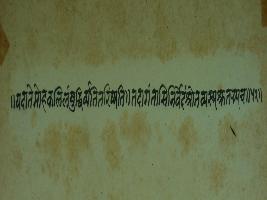 ॥यदातेमोहकलिलंबुद्धिर्व्यतितरिष्यति॥तदागंतासिनिर्वेदंश्रोतव्यस्यश्रुतस्यच॥५२॥